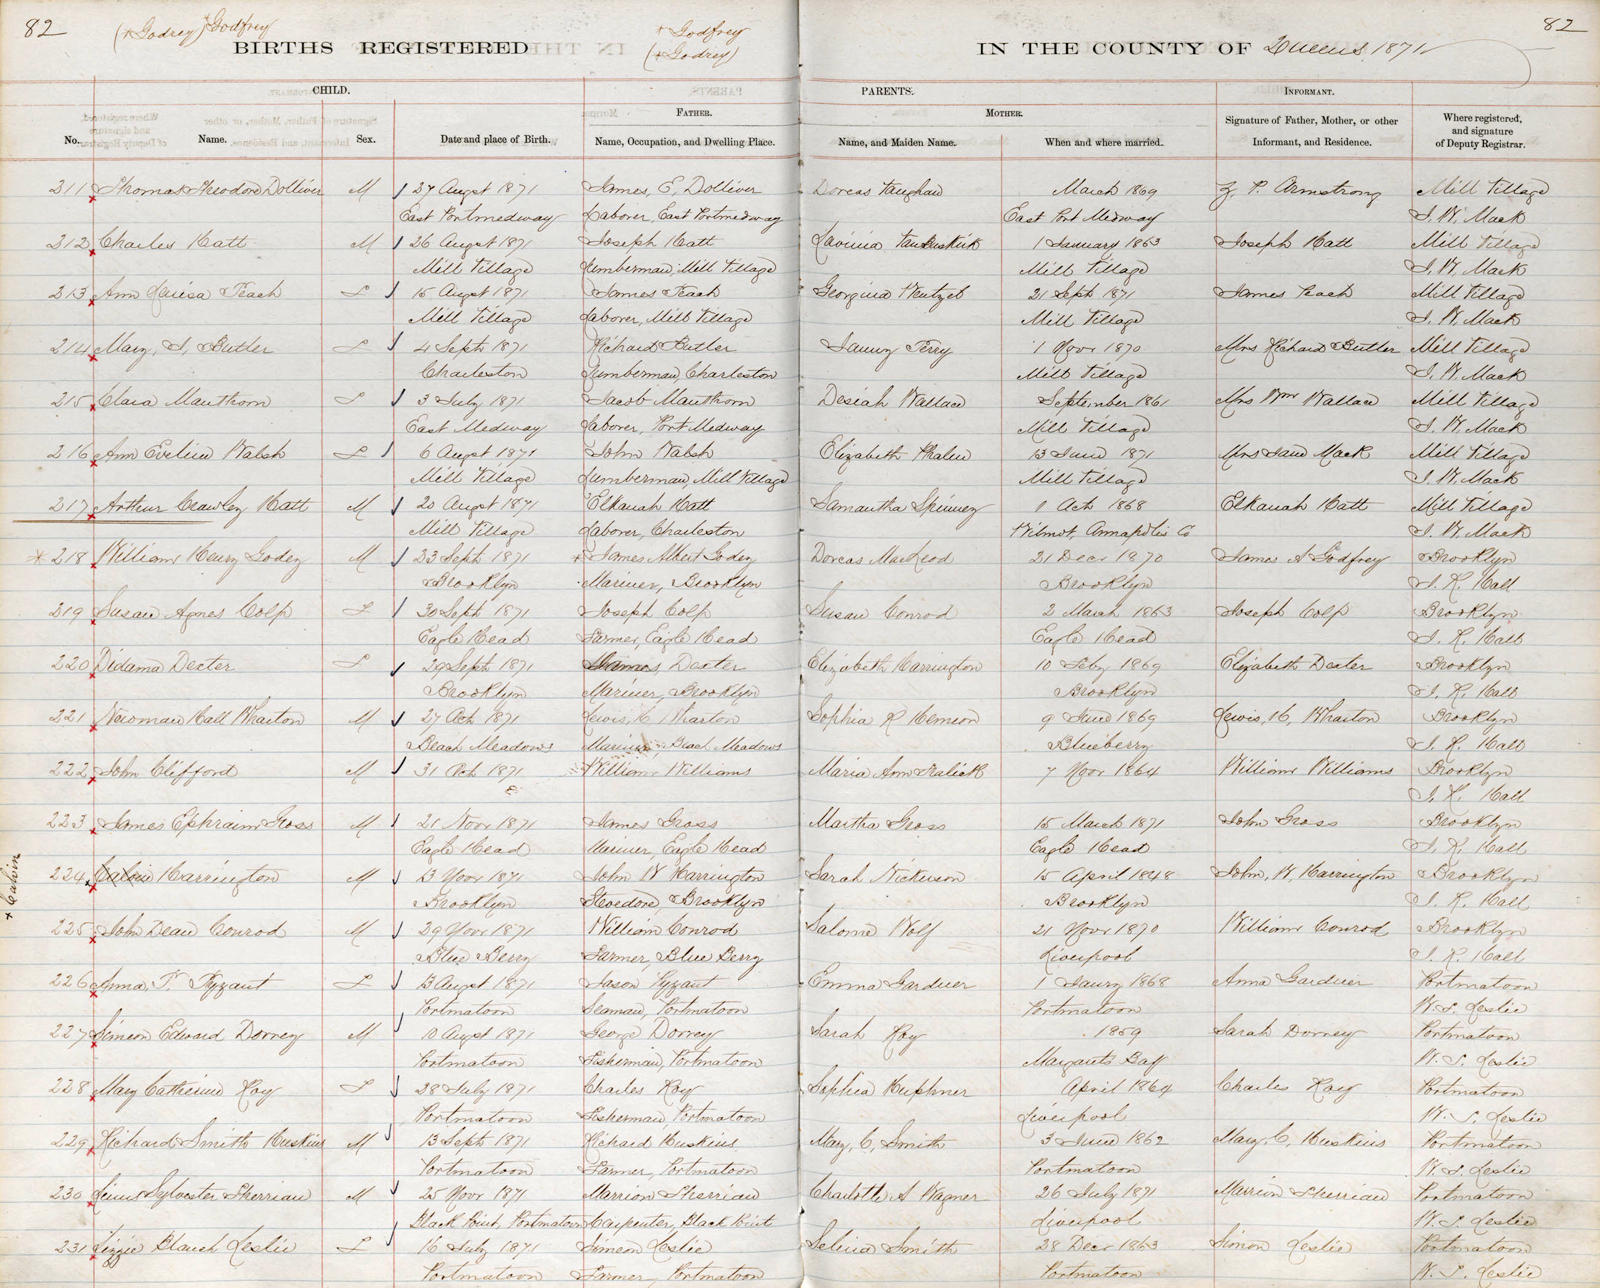 82
(+Godrey) + Godfrey
+ Godfrey
(+Godrey)
82
BIRTHS REGISTERED IN THE COUNTY OF Queens 1871
CHILD. PARENTS. INFORMANT.
FATHER. MOTHER.
No. Name. Sex. Date and place of Birth. Name, Occupation, and Dwelling Place. Name, and Maiden Name. When and where married. Signature of Father, Mother, or other Informant, and Residence. Where registered, and signature of Deputy Registrar.
211 Thomas Theodore Dolliver M 27 Augst 1871 James, E, Dolliver Dorcas Vaughan March 1869 Z. P. Armstrong Mill Village
East Portmedway Laborer, East Portmedway East Port Medway S. W. Mack
212 Charles Hatt M 26 Augst 1871 Joseph Hatt Lavinia Vanbuskirk 1 January 1863 Joseph Hatt Mill Village
Mill Village Lumberman, Mill Village Mill Village S. W. Mack
213 Ann Louisa Teach F 15 Augst 1871 James Teach Georgina Wentzel 21 Sept 1871 James Teach Mill Village
Mill Village Laborer, Mill Village Mill Village S. W. Mack
214 Mary, S, Butler F 4 Sept 1871 Richard Butler Fanny Terry 1 Novr 1870 Mrs Richard Butler Mill Village
Charleston Lumberman, Charleston Mill Village S. W. Mack
215 Clara Manthorn F 3 July 1871 Jacob Manthorn Desiah Wallace September 1861 Mrs Wm Wallace Mill Village
East Medway Laborer, Port Medway Mill Village S. W. Mack
216 Ann Evelina Walsh F 6 Augst 1871 John Walsh Elizabeth Whalen 13 June 1871 Mrs Jane Mack Mill Village
Mill Village Lumberman, Mill Village Mill Village S. W. Mack
217 Arthur Crawley Hatt M 20 Augst 1871 Elkanah Hatt Samantha Spinney 1 Oct 1868 Elkanah Hatt Mill Village
Mill Village Laborer, Charleston Wilmot, Annapolis Co S. W. Mack
* 218 William Henry Godry M 23 Sept 1871 + James Albert Godry Dorcas MacLeod 21 Decr 1870 James A Godfrey Brooklyn
Brooklyn Mariner, Brooklyn Brooklyn S. R. Hall
219 Susan Agnes Colp F 30 Sept 1871 Joseph Colp Susan Conrod 2 March 1863 Joseph Colp Brooklyn
Eagle Head Farmer, Eagle Head Eagle Head S. R. Hall
220 Didama Dexter F 29 Sept 1871 Dexter Elizabeth Harrington 10 Feby 1869 Elizabeth Dexter Brooklyn
Brooklyn Mariner, Brooklyn Brooklyn S. R. Hall
221 Newman Hall Wharton M 27 Oct 1871 Lewis, H Wharton Sophia R Hemeon 9 June 1869 Lewis, H, Wharton Brooklyn
Beach Meadows Mariner, Beach Meadows Blueberry S. R. Hall
222 John Clifford M 31 Oct 1871 William Williams Maria Ann 7 Novr 1864 William Williams Brooklyn
S. R. Hall
223 James Ephraim Gross M 21 Novr 1871 James Gross Martha Gross 15 March 1871 John Gross Brooklyn
Eagle Head Mariner, Eagle Head Eagle Head S. R. Hall
+ Calvin
224 Calvin Harrington M 13 Novr 1871 John W Harrington Sarah Nickerson 15 April 1848 John, W, Harrington Brooklyn
Brooklyn Stevedore, Brooklyn Brooklyn S. R. Hall
225 John Dean Conrod M 29 Novr 1871 William Conrod Salome Wolf 21 Novr 1870 William Conrod Brooklyn
Blue Berry Farmer, Blue Berry Liverpool S. R. Hall
226 Anna, F. Pyzant F 13 Augst 1871 Jason Pyzant Emma Gardner 1 Jany 1868 Anna Gardner Portmatoon
Portmatoon Seaman, Portmatoon Portmatoon W. S. Leslie
227 Simeon Edward Dorney M 10 Augst 1871 George Dorney Sarah Roy 1859 Sarah Dorney Portmatoon
Portmatoon Fisherman, Portmatoon Margarets Bay W. S. Leslie
228 Mary Catherine Roy F 28 July 1871 Charles Roy Sophia Huphner April 1864 Charles Roy Portmatoon
Portmatoon Fisherman, Portmatoon Liverpool W. S. Leslie
229 Richard Smith Huskins M 13 Sept 1871 Richard Huskins Mary, C, Smith 3 June 1862 Mary, C, Huskins Portmatoon
Portmatoon Farmer, Portmatoon Portmatoon W. S. Leslie
230 Linus Sylvester Sherriau M 25 Novr 1871 Marrion Sherriau Charlotte A Wagner 26 July 1871 Marrion Sherriau Portmatoon
Black Point, Portmatoon Carpenter, Black Point Liverpool W. S. Leslie
231 Lizzie Blanch Leslie F 16 July 1871 Simeon Leslie Selina Smith 28 Decr 1863 Simon Leslie Portmatoon
Portmatoon Farmer, Portmatoon Portmatoon W. S. Leslie